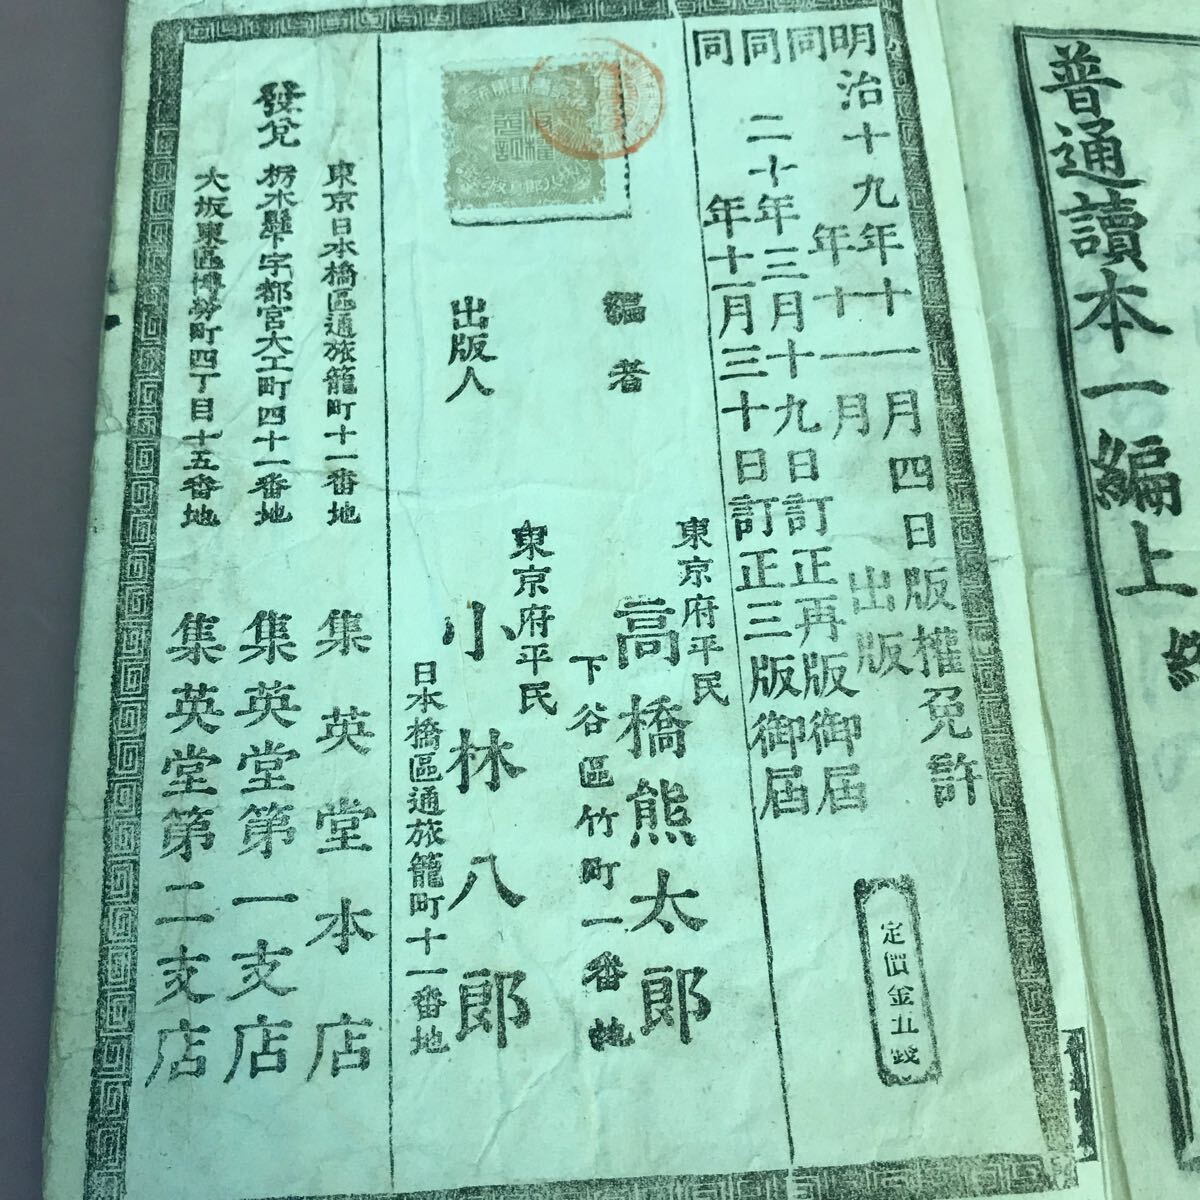 普通讀本一編上終
明治十九年十一月四日版權免許
同年十一月出版
同二十年三月十九日訂正再版御届
同年十一月三十日訂正三版御届
定價金五錢
編者
東京府平民
高橋熊太郎
下谷區竹町一番地
出版人
東京府平民
小林八郎
日本橋區通旅籠町十一番地
發兌
東京日本橋區通旅籠町十一番地 集英堂本店
栃木縣下宇都宮大工町四十一番地 集英堂第一支店
大坂東區博勞町四丁目十五番地 集英堂第二支店